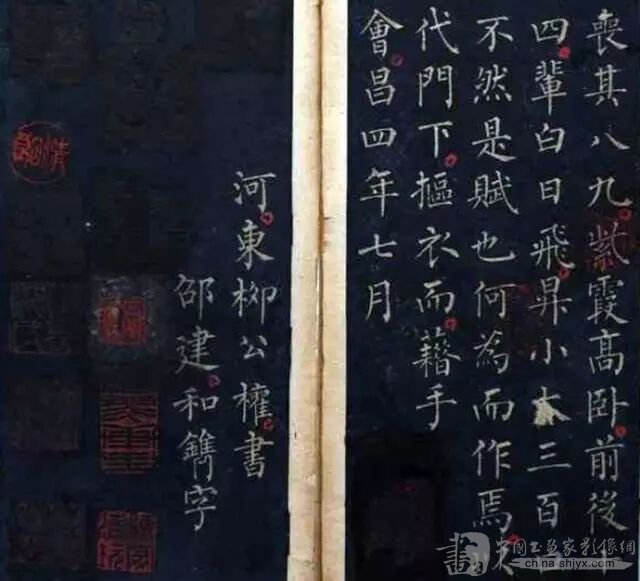 喪其八九紫霞高卧前後
四輩白日飛昇小大三百
不然是賦也何為而作焉
代門下摳衣而藉手
會昌四年七月
河東柳公權書
邵建和鐫字
china.shjyx.com